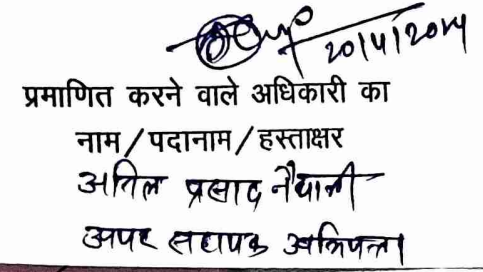 20/4/2014
प्रमाणित करने वाले अधिकारी का
नाम/पदानाम/हस्ताक्षर
अनिल प्रसाद नैथानी
अपर सहायक अभियन्ता